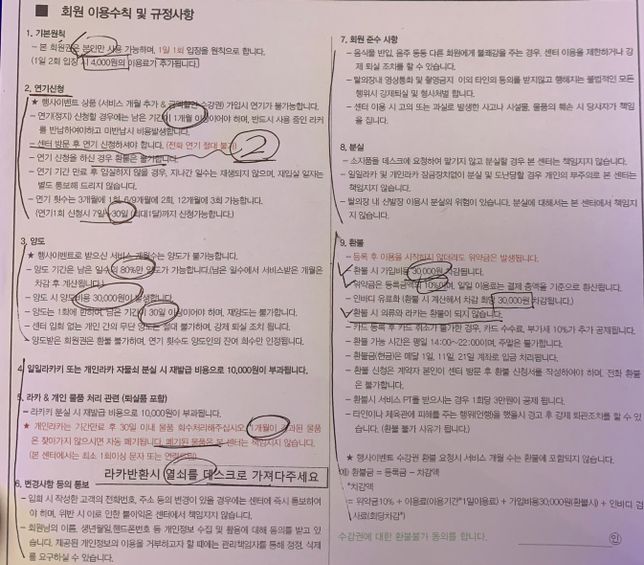 ■ 회원 이용수칙 및 규정사항
1. 기본원칙
– 본 회원권은 본인만 사용 가능하며, 1일 1회 입장을 원칙으로 합니다.
(1일 2회 입장 시 4,000원의 이용료가 추가됩니다.)
2. 연기신청
★ 행사이벤트 상품 (서비스 개월 추가 & 금액할인 수강권) 가입시 연기가 불가능합니다.
– 연기(정지) 신청할 경우에는 남은 기간이 1개월 이상이어야 하며, 반드시 사용 중인 라커
를 반납하여야하고 미반납시 비용발생합니다.
– 센터 방문 후 연기 신청하셔야 합니다. (전화 연기 절대 불가)
②
– 연기 신청을 하신 경우 환불은 불가합니다.
– 연기 기간 만료 후 입실하지 않을 경우, 지나간 일수는 재생되지 않으며, 재입실 일자는
별도 통보해 드리지 않습니다.
– 연기 횟수는 3개월에 1회, 6/9개월에 2회, 12개월에 3회 가능합니다.
(연기1회 신청시 7일~30일(최대1달)까지 신청가능합니다.)
3. 양도
★ 행사이벤트로 받으신 서비스 개월수는 양도가 불가능합니다.
– 양도 기간은 남은 일수의 80%만 양도가 가능합니다.(남은 일수에서 서비스받은 개월은
차감 후 계산됩니다.)
– 양도 시 양도비용 30,000원이 발생합니다.
– 양도는 1회에 한하며, 남은 기간이 30일 이상이어야 하며, 재양도는 불가합니다.
– 센터 입회 없는 개인 간의 무단 양도는 절대 불가하며, 강제 퇴실 조치 됩니다.
양도받은 회원권은 환불 불가하며, 연기 횟수도 양도인의 잔여 횟수만 인정됩니다.
4. 일일라카키 또는 개인라카 자물쇠 분실 시 재발급 비용으로 10,000원이 부과됩니다.
5. 라카 & 개인 물품 처리 관련 (퇴실품 포함)
– 라카키 분실 시 재발급 비용으로 10,000원이 부과됩니다.
★ 개인라카는 기간만료 후 30일 이내 물품 회수처리해주십시오. 1개월이 초과된 물품
은 찾아가지 않으시면 자동 폐기됩니다. 폐기된 물품은 본 센터는 책임지지 않습니다.
(본 센터에서는 최소 1회이상 문자 또는 연락드림)
라카반환시 열쇠를 데스크로 가져다주세요
6. 변경사항 등의 통보
– 입회 시 작성한 고객의 전화번호, 주소 등의 변경이 있을 경우에는 센타에 즉시 통보하여
야 하며, 위반 시 이로 인한 불이익은 센터에서 책임지지 않습니다.
– 회원님의 이름, 생년월일,핸드폰번호 등 개인정보 수집 및 활용에 대해 동의를 받고 있
습니다. 제공된 개인정보의 이용을 거부하고자 할 때에는 관리책임자를 통해 정정, 삭제
를 요구하실 수 있습니다.
7. 회원 준수 사항
– 음식물 반입, 음주 등등 다른 회원에게 불쾌감을 주는 경우, 센터 이용을 제한하거나 강
제 퇴실 조치를 할 수 있습니다.
– 탈의장내 영상통화 및 촬영금지. 이외 타인의 동의를 받지않고 행해지는 불법적인 모든
행위시 강제퇴실 및 형사처벌 합니다.
– 센터 이용 시 고의 또는 과실로 발생한 사고나 시설물, 물품의 훼손 시 당사자가 책임
을 집니다.
8. 분실
– 소지품을 데스크에 요청하여 맡기지 않고 분실할 경우 본 센터는 책임지지 않습니다.
– 일일라카 및 개인라카 잠금장치없이 분실 및 도난당할 경우 개인의 부주의로 본 센터는
책임지지 않습니다.
– 탈의장 내 신발장 이용시 분실의 위험이 있습니다. 분실에 대해서는 본 센터에서 책임지
지 않습니다.
9. 환불
– 등록 후 이용을 시작하지 않더래도 위약금은 발생됩니다.
– 환불 시 가입비용 30,000원 차감됩니다.
– 위약금은 등록금액의 10%이며, 일일 이용료는 결제 총액을 기준으로 환산됩니다.
– 인바디 유료화 (환불 시 계산해서 차감 회당 30,000원 차감됩니다.)
– 환불 시 의류와 라카는 환불이 되지 않습니다.
– 카드 등록 후 카드 취소가 불가한 경우, 카드 수수료, 부가세 10%가 추가 공제됩니다.
– 환불 가능 시간은 평일 14:00~22:00이며, 주말은 불가합니다.
– 환불금(현금)은 매달 1일, 11일, 21일 계좌로 입금 처리됩니다.
– 환불 신청은 계약자 본인이 센터 방문 후 환불 신청서를 작성하여야 하며, 전화 환불
은 불가합니다.
– 환불시 서비스 PT를 받으시는 경우 1회당 3만원이 공제 됩니다.
– 타인이나 체육관에 피해를 주는 행위(언행)을 했을시 경고 후 강제 퇴관조치를 할 수 있
다. (환불 불가 사유가 됩니다.)
★ 행사이벤트 수강권 환불 요청시 서비스 개월 수는 환불에 포함되지 않습니다.
예) 환불금 = 등록금 – 차감액
*차감액
= 위약금10% + 이용료(이용기간*1일이용료) + 가입비용30,000원(환불시) + 인바디 검
사료(회당차감*)
수강권에 대한 환불불가 동의를 합니다.
인